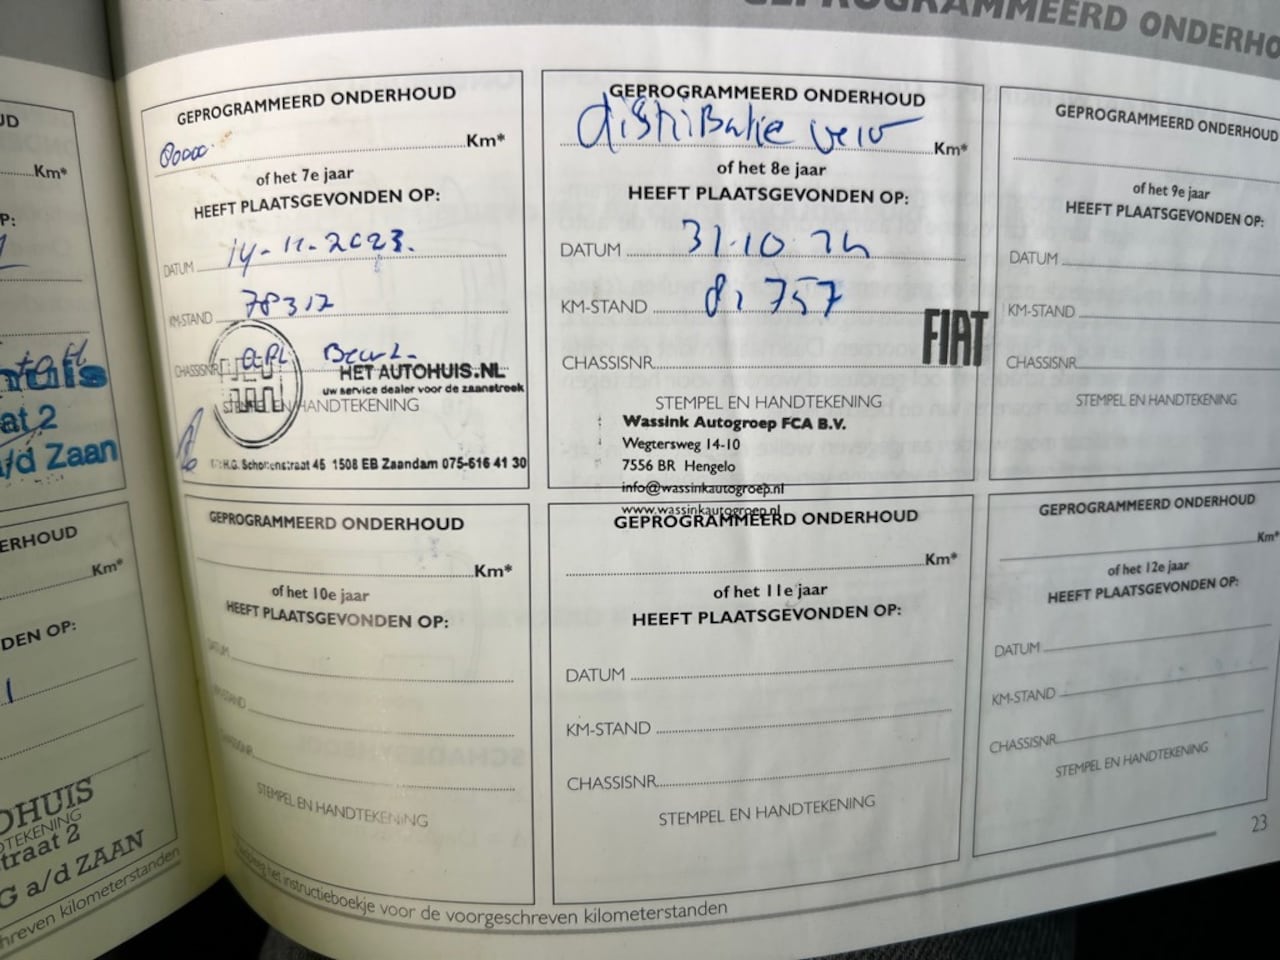 GEPROGRAMMEERD ONDERHO
GEPROGRAMMEERD ONDERHOUD
80000 Km*
of het 7e jaar
HEEFT PLAATSGEVONDEN OP:
DATUM 14-11-2023.
KM-STAND 78312
CHASSISNR. APL Beurt.
HET AUTOHUIS.NL
uw service dealer voor de zaanstreek
STEMPEL EN HANDTEKENING
H.G. Scholtenstraat 45 1508 EB Zaandam 075-616 41 30
GEPROGRAMMEERD ONDERHOUD
distributie Km*
of het 8e jaar
HEEFT PLAATSGEVONDEN OP:
DATUM 31.10.24
KM-STAND 81757
FIAT
CHASSISNR.
STEMPEL EN HANDTEKENING
Wassink Autogroep FCA B.V.
Wegtersweg 14-10
7556 BR Hengelo
info@wassinkautogroep.nl
www.wassinkautogroep.nl
GEPROGRAMMEERD ONDERHOUD
of het 9e jaar
HEEFT PLAATSGEVONDEN OP:
DATUM
KM-STAND
CHASSISNR.
STEMPEL EN HANDTEKENING
GEPROGRAMMEERD ONDERHOUD
Km*
of het 10e jaar
HEEFT PLAATSGEVONDEN OP:
DATUM
KM-STAND
CHASSISNR.
STEMPEL EN HANDTEKENING
GEPROGRAMMEERD ONDERHOUD
Km*
of het 11e jaar
HEEFT PLAATSGEVONDEN OP:
DATUM
KM-STAND
CHASSISNR.
STEMPEL EN HANDTEKENING
GEPROGRAMMEERD ONDERHOUD
Km*
of het 12e jaar
HEEFT PLAATSGEVONDEN OP:
DATUM
KM-STAND
CHASSISNR.
STEMPEL EN HANDTEKENING
het instructieboekje voor de voorgeschreven kilometerstanden
23
UD
Km*
P:
huis
at 2
a/d Zaan
ERHOUD
Km*
DEN OP:
OHUIS
TEKENING
traat 2
G a/d ZAAN
hreven kilometerstanden